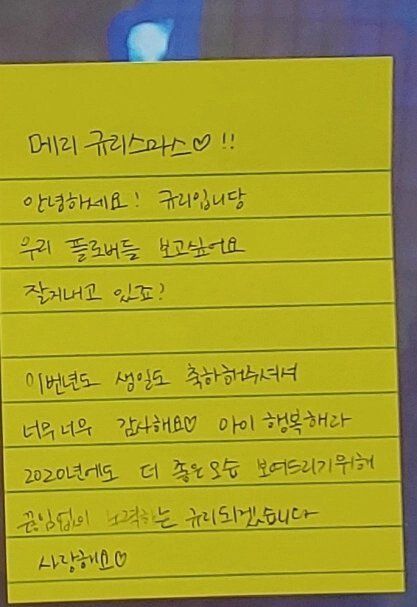 메리 규리스마스♡!!
안녕하세요! 규리입니당
우리 플로버들 보고싶어요
잘지내고 있죠?
이번년도 생일도 축하해주셔서
너무너무 감사해요♡ 아이 행복해라
2020년에도 더 좋은모습 보여드리기위해
끊임없이 노력하는 규리되겠습니다
사랑해요♡